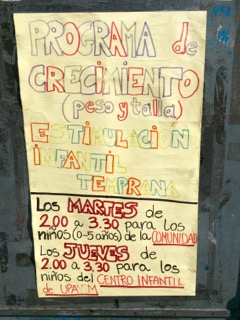 PROGRAMA de
CRECIMIENTO
(peso y talla)
ESTIMULACION
INFANTIL
TEMPRANA
Los MARTES de
2.00 a 3.30 para los
niños (0-5 años) de la COMUNIDAD
Los JUEVES de
2.00 a 3.30 para los
niños del CENTRO INFANTIL
de